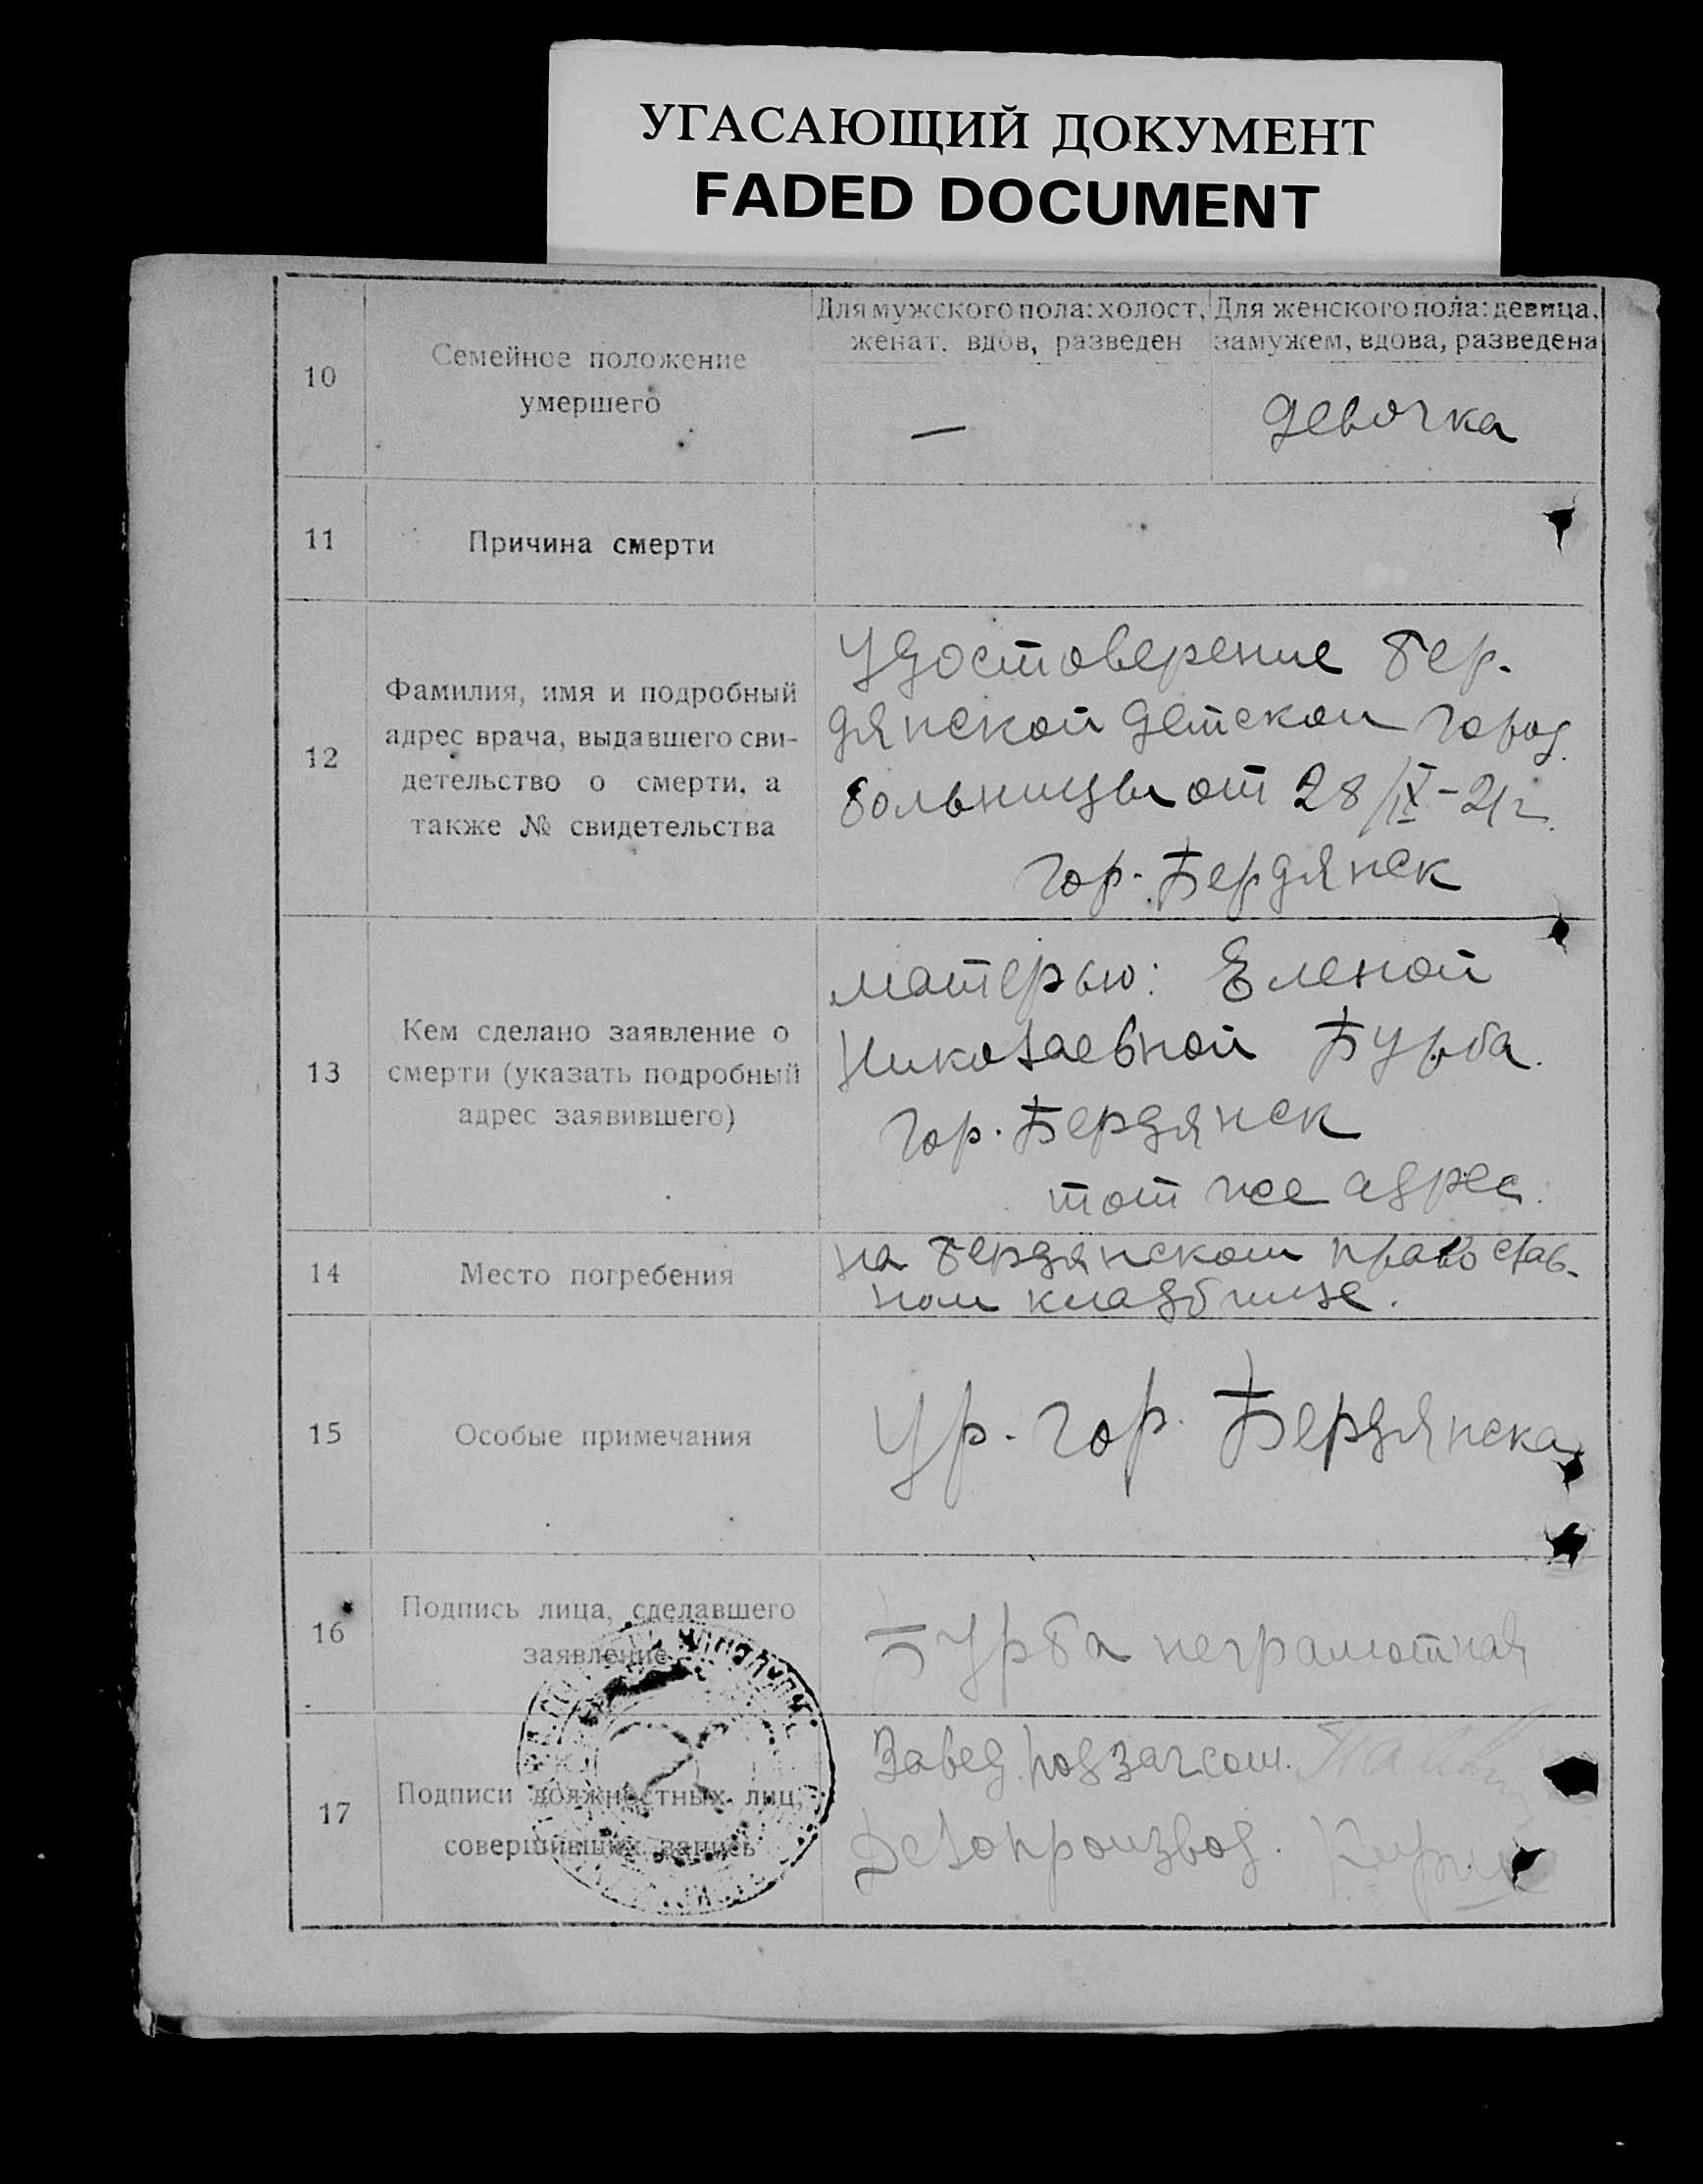 УГАСАЮЩИЙ ДОКУМЕНТ
FADED DOCUMENT
10
Семейное положение
умершего
Для мужского пола: холост,
женат, вдов, разведен
—
Для женского пола: девица,
замужем, вдова, разведена
девочка
11
Причина смерти
12
Фамилия, имя и подробный
адрес врача, выдавшего сви-
детельство о смерти, а
также № свидетельства
Удостоверение бер-
дянской детской город.
больницы от 28/IX-21г.
гор. Бердянск
13
Кем сделано заявление о
смерти (указать подробный
адрес заявившего)
матерью: Еленой
Николаевной Бурба.
гор. Бердянск
тот же адрес.
14
Место погребения
на бердянском православ-
ном кладбище.
15
Особые примечания
Ур. гор. Бердянска
16
Подпись лица, сделавшего
заявление
Бурба неграмотная
17
Подписи должностных лиц,
совершивших запись
Завед. подзагсом.
Делопроизвод.